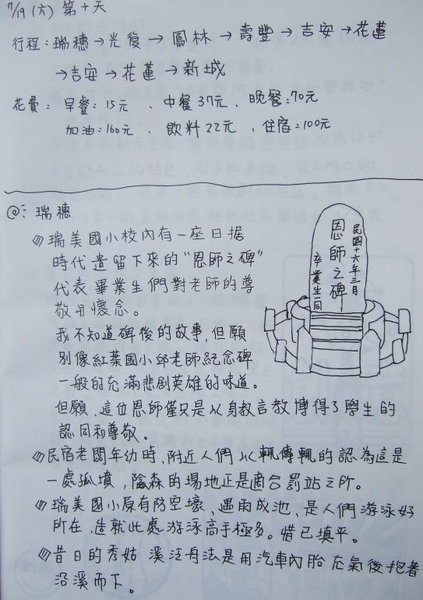 7/19 (六) 第十天
行程:瑞穗→光復→鳳林→壽豐→吉安→花蓮
→吉安→花蓮→新城
花費:早餐:15元、中餐37元、晚餐:70元
加油:160元、飲料22元、住宿:100元
@:瑞穗
瑞美國小校內有一座日据
時代遺留下來的"恩師之碑"
代表畢業生們對老師的尊
敬及懷念。
我不知道碑後的故事,但願
別像紅葉國小邱老師紀念碑
一般的充滿悲劇英雄的味道。
但願,這位恩師僅只是以身教言教博得了學生的
認同和尊敬。
民國十六年三月
恩師之碑
卒業生一同
民宿老闆年幼時,附近人們以訛傳訛的認為這是
一處孤墳,陰森的場地正是適合罰站之所。
瑞美國小原有防空壕、遇雨成池,是人們游泳好
所在,造就此處游泳高手極多。惜已填平。
昔日的秀姑溪泛舟法是用汽車內胎充氣後抱著
沿溪而下。